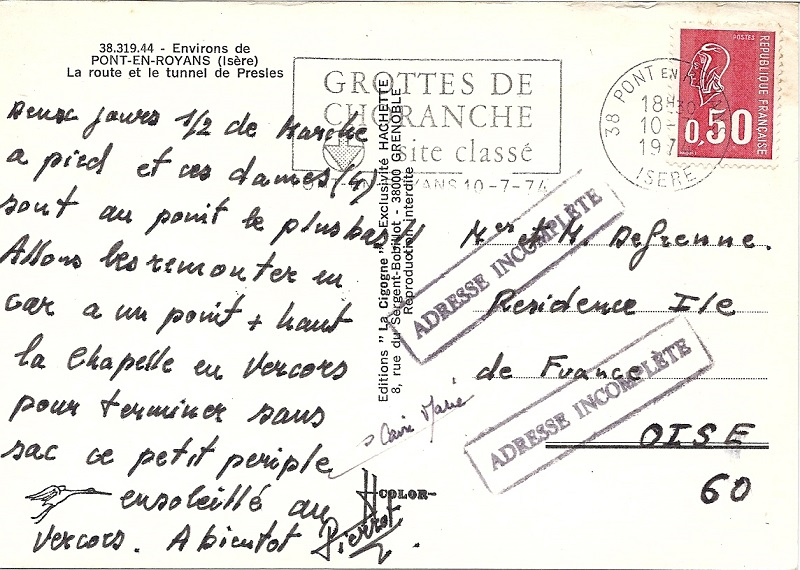 38.319.44 - Environs de
PONT-EN-ROYANS (Isère)
La route et le tunnel de Presles
GROTTES DE
CHORANCHE
site classé
ROYANS 10-7-74
38 PONT EN
18H30
10-
197
ISERE
POSTES
REPUBLIQUE FRANÇAISE
0,50
Deux jours 1/2 de Marche
a pied et ces dames (4)
sont au point le plus bas !
Allons les remonter en
car a un point + haut
la Chapelle en Vercors
pour terminer sans
sac ce petit periple
ensoleillé au
Vercors. A bientot Pierrot.
Editions "La Cigogne" Exclusivité HACHETTE
8, rue du Sergent-Bobillot - 38000 GRENOBLE
Reproduction interdite
COLOR-
ADRESSE INCOMPLÈTE
Mer et M. Defrenne.
Residence Ile
de France
ADRESSE INCOMPLÈTE
OISE
60